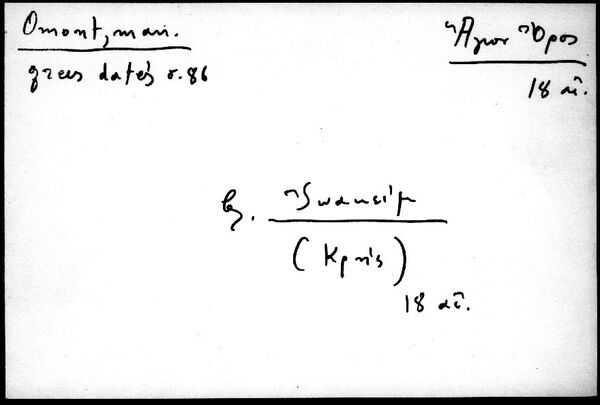 Omont, man.
grecs datés σ. 86
Ἅγιον Ὄρος
18 αἰ.
βλ. Ἰωακείμ
(Κρής)
18 αἰ.